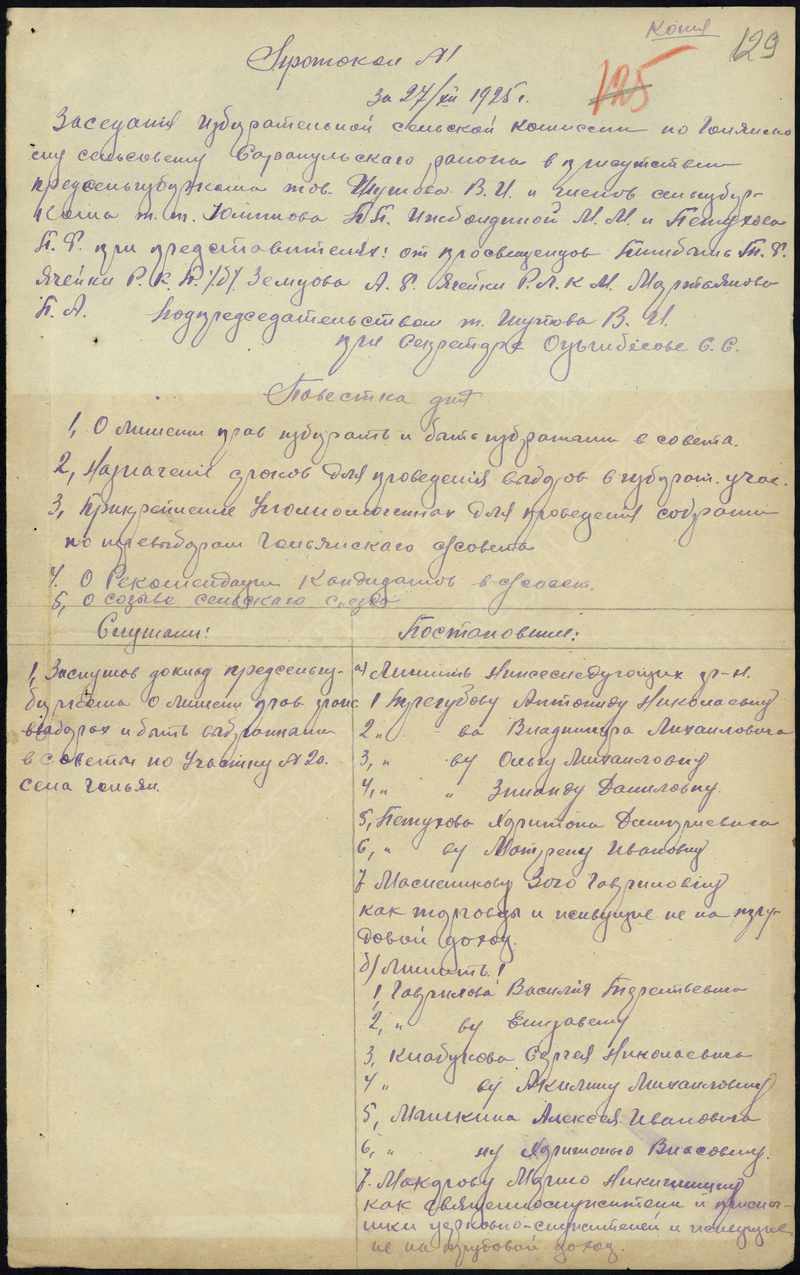 Копия
129
125
Протокол №1
За 27/XII 1925 г.
Заседания избирательной сельской комиссии по Гольянско
му сельсовету Сарапульского района в присутствии
предсельизбиркома тов. Шутова В. И. и членов сельизбир-
кома т. т. П. П. М. М. и Петухова
П. Ф. при представителях: от просвещенцев Т. Ф.
Ячейки Р. К. П. /б/ Земцова А. Ф. Ячейки Р. Л. К. М. Мартьянова
П. А. Под председательством т. Шутова В. И.
при Секретаре С. С.
Повестка дня
1, О лишении прав избирать и быть избранами в совета.
2, Назначение сроков для проведения выборов в избират. учас.
3, Прикрепление Уполномоченных для проведения собрания
по перевыборам Гольянского с/совета
4. О Рекомендации Кандидатов в с/совет.
5, О созыве сельского с'езда
Слушали:
Постановили:
1, Заслушав доклад предсельиз-
биркома о лишении прав
выборах и быть выбранами
в советы по Участку № 20.
села Гольян.
а) Лишить Нижеследующих гр-н.
1 Трегубову Антониду Николаевну
2 " ва Владимира Михайловича
3, " ву Ольгу Михайловну
4, " " Зинаиду Даниловну.
5, Петухова Харитона Дмитриевича
6, " ву Матрену Ивановну
7 Масленикову Зою Гавриловну
как торговцы и живущие не на тру-
довой доход.
б) Лишить!
1, Гаврилова Василия Терентьевича
2, " ву Елизавету
3, Клабукова Сергея Николаевича
4 " ву Акилину Михайловну
5, Мышкина Алексея Ивановича
6, " ну Харитонью Власовну.
7. Макарову Марию Никитишну
как священнослужители и прислу-
жники церковно-служителей и живущие
не на трудовой доход.